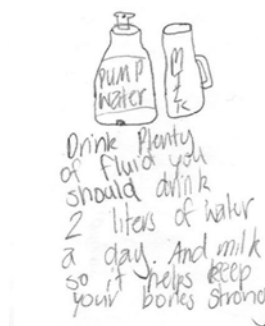 PUMP
water
MILK
Drink Plenty
of fluid you
should drink
2 liters of water
a day. And milk
so it helps keep
your bones strong